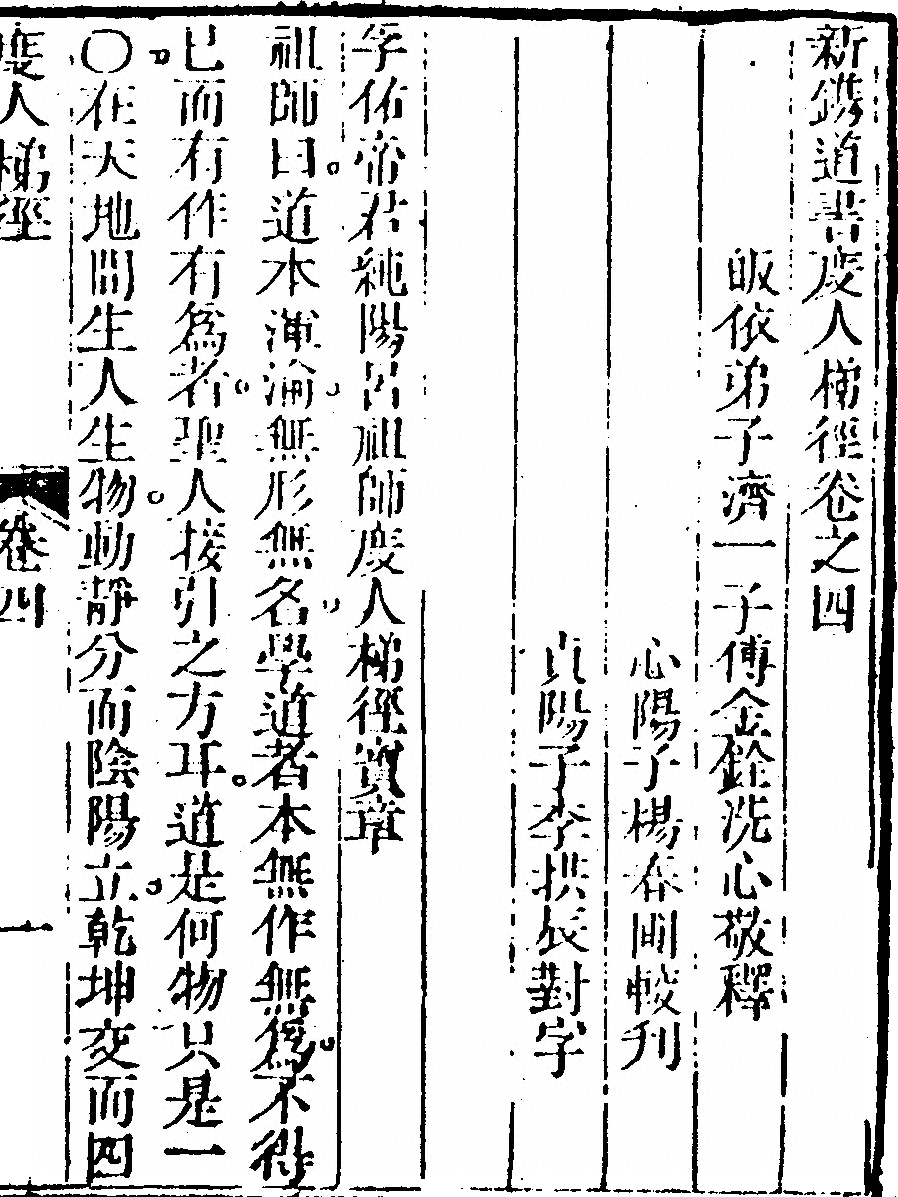 新鐫道書度人梯徑卷之四
皈依弟子濟一子傅金銓洗心敬釋
心陽子楊春圃較刊
貞陽子李拱辰對字
孚佑帝君純陽呂祖師度人梯徑寶章
祖師曰道本渾淪無形無名學道者本無作無爲不得
已而有作有爲者聖人接引之方耳道是何物只是一
〇在天地間生人生物動靜分而陰陽立乾坤交而四
度人梯徑 卷四 一